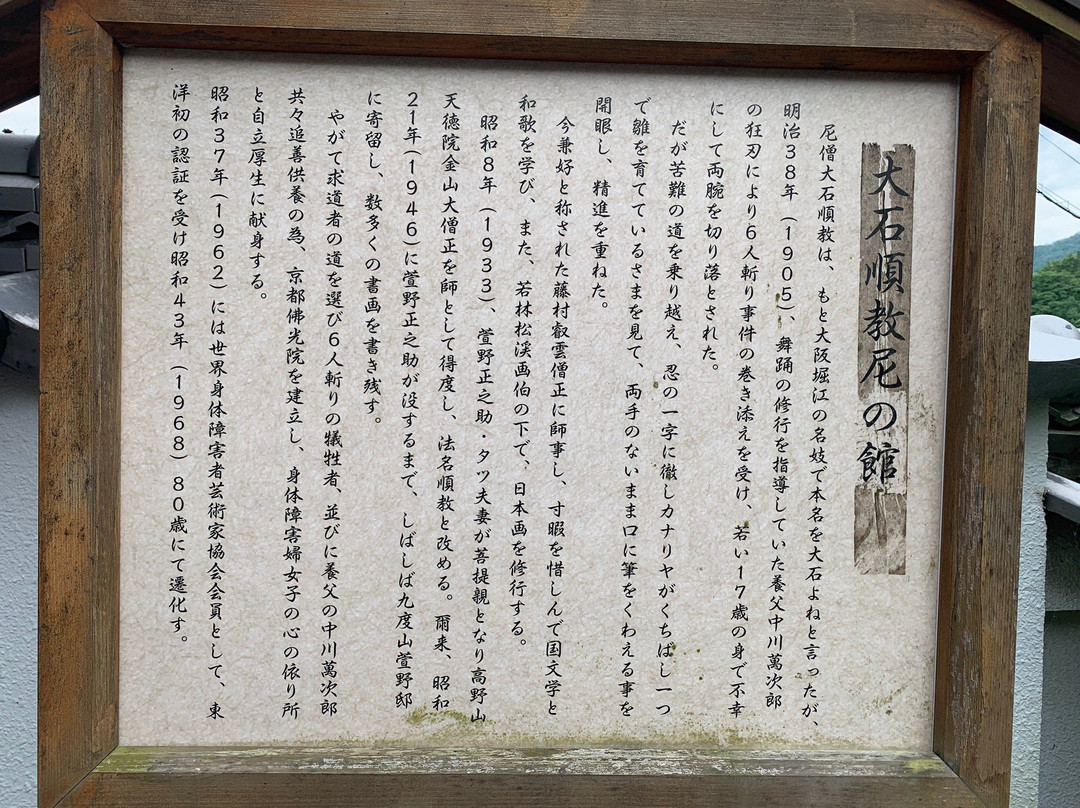 大石順教尼の館
尼僧大石順教は、もと大阪堀江の名妓で本名を大石よねと言ったが、
明治38年(1905)、舞踊の修行を指導していた養父中川萬次郎
の狂刃により6人斬り事件の巻き添えを受け、若い17歳の身で不幸
にして両腕を切り落とされた。
だが苦難の道を乗り越え、忍の一字に徹しカナリヤがくちばし一つ
で雛を育てているさまを見て、両手のないまま口に筆をくわえる事を
開眼し、精進を重ねた。
今兼好と称された藤村叡雲僧正に師事し、寸暇を惜しんで国文学と
和歌を学び、また、若林松渓画伯の下で、日本画を修行する。
昭和8年(1933)、萱野正之助・タツ夫妻が菩提親となり高野山
天徳院金山大僧正を師として得度し、法名順教と改める。爾来、昭和
21年(1946)に萱野正之助が没するまで、しばしば九度山萱野邸
に寄留し、数多くの書画を書き残す。
やがて求道者の道を選び6人斬りの犠牲者、並びに養父の中川萬次郎
共々追善供養の為、京都佛光院を建立し、身体障害婦女子の心の依り所
と自立厚生に献身する。
昭和37年(1962)には世界身体障害者芸術家協会会員として、東
洋初の認証を受け昭和43年(1968)80歳にて遷化す。